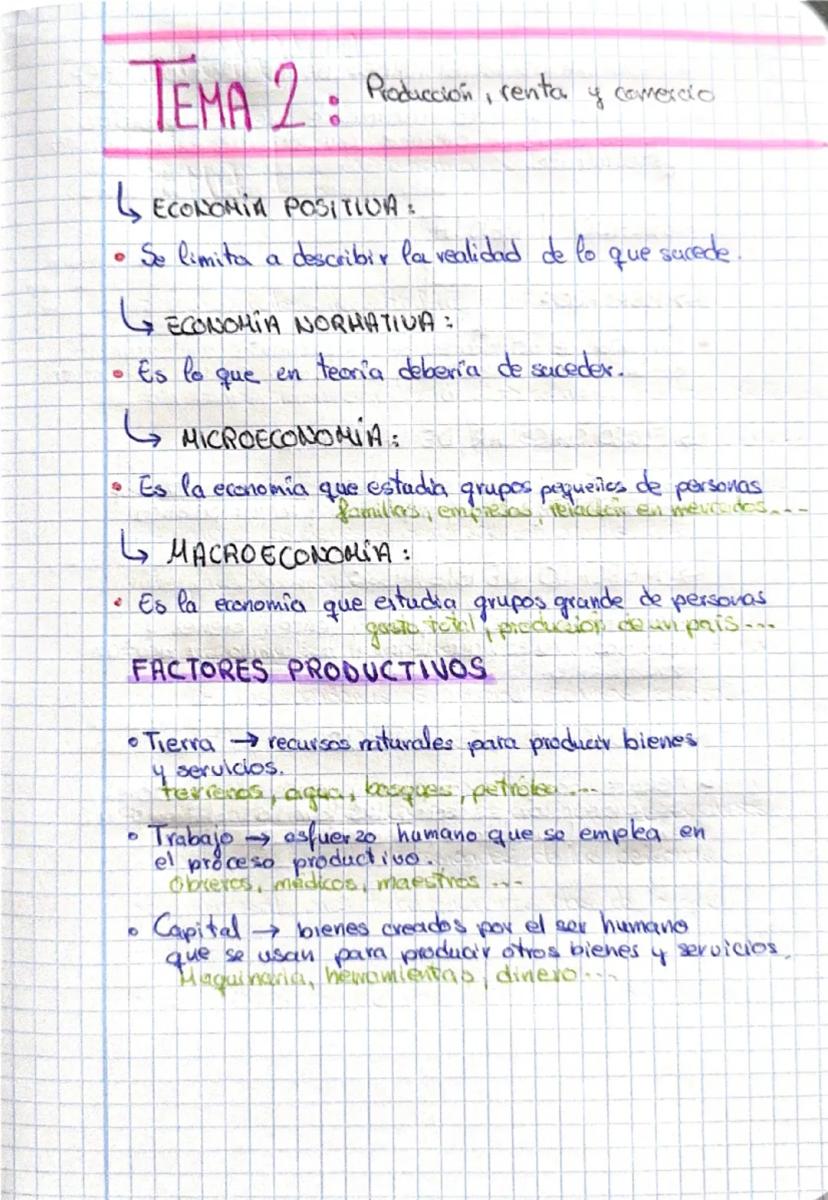 TEMA 2: Producción, renta y comercio
↳ ECONOMÍA POSITIVA:
• Se limita a describir la realidad de lo que sucede.
↳ ECONOMÍA NORMATIVA:
• Es lo que en teoría debería de suceder.
↳ MICROECONOMÍA:
• Es la economía que estudia grupos pequeños de personas
familias, empresas, relación en mercados...
↳ MACROECONOMÍA:
• Es la economía que estudia grupos grande de personas
gasto total, producción de un país...
FACTORES PRODUCTIVOS
• Tierra → recursos naturales para producir bienes
y servicios.
terrenos, agua, bosques, petróleo...
• Trabajo → esfuerzo humano que se emplea en
el proceso productivo.
Obreros, médicos, maestros...
• Capital → bienes creados por el ser humano
que se usan para producir otros bienes y servicios.
Maquinaria, herramientas, dinero...